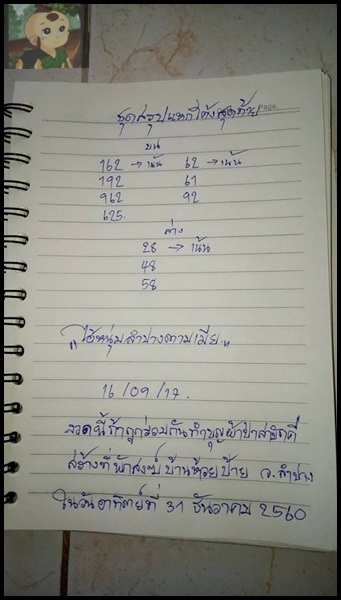 Page.
ชุดสรุปแยกใต้ดินชุดท้าย
บน
162 → เน้น 62 → เน้น
192 61
962 92
625.
ล่าง
28 → เน้น
48
58
"ไอ้หนุ่มลำปางตามเมีย"
16/09/17.
งวดนี้ถ้าถูกร่วมกันทำบุญผ้าป่าสามัคคี
สร้างที่พักสงฆ์บ้านห้วยป้าย จ.ลำปาง
ในวันอาทิตย์ที่ 31 ธันวาคม 2560